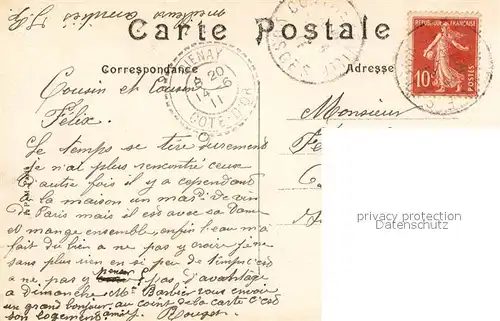 meilleurs amitiés
Carte Postale
Correspondance
Adresse
RÉPUBLIQUE FRANÇAISE
10
20
14 - 6
11
COTE-D'OR
Monsieur
Cousin et Cousin
Félix.
Le temps se tire durement
je n'ai plus rencontré ceux
d'autre fois il y a cependant
à la maison un md de vin
de Paris mais il est avec sa Dame
et mange ensemble, enfin l'eau m'a
fait du bien a ne pas y croire
sans plus rien en peu de temps c'est
a ne pas y penser pas d'avantage
a Dimanche Mr Barbié vous envoie
un grand bonjour au coin de la carte c'est
son logement amis, Rouget
privacy protection